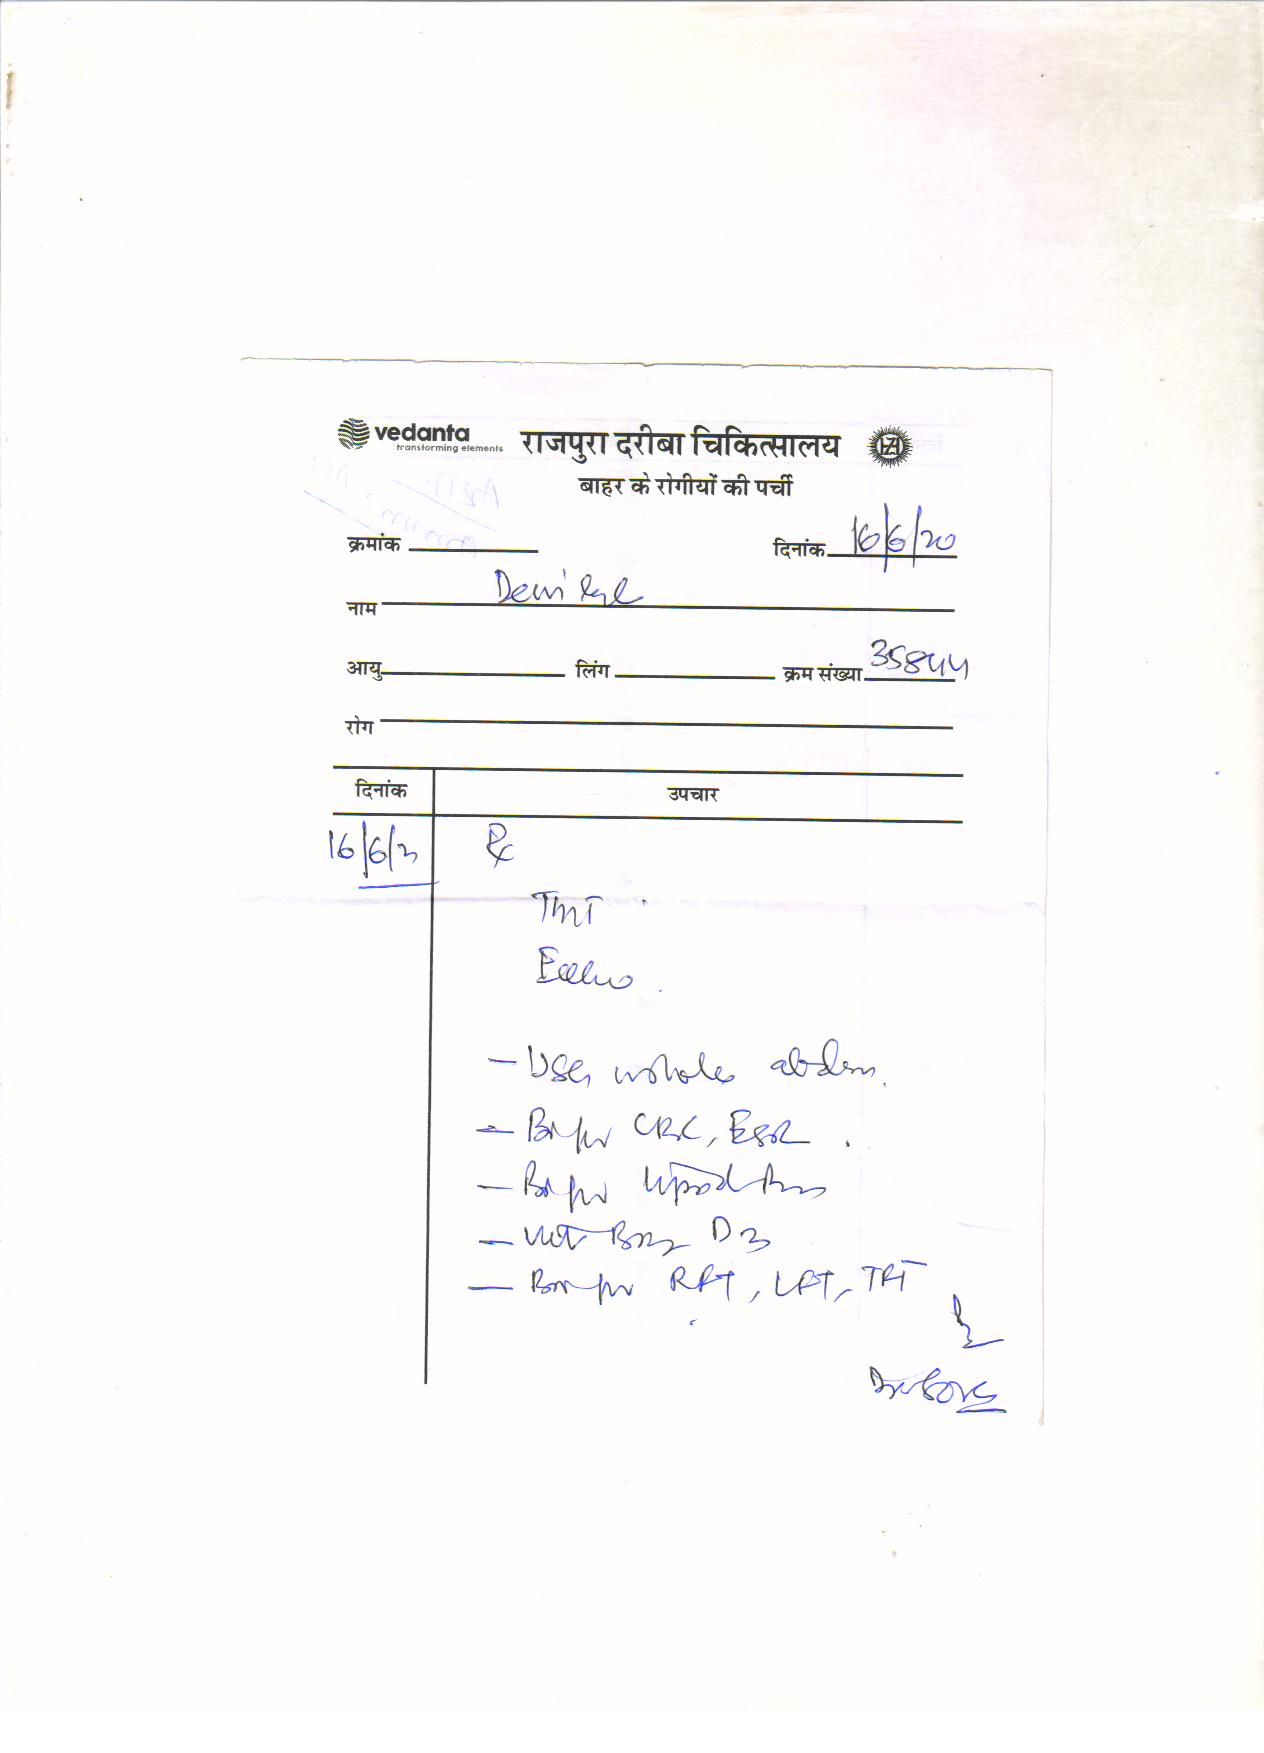 vedanta
transforming elements
राजपुरा दरीबा चिकित्सालय
बाहर के रोगीयों की पर्ची
क्रमांक
दिनांक 16/6/20
नाम Devi
आयु लिंग क्रम संख्या 35844
रोग
दिनांक उपचार
16/6/20 Rx
TMT
Echo
- USG whole abdom
- CBC, ESR
- Lipid
- Vit B12 D3
- RFT, LFT, TFT